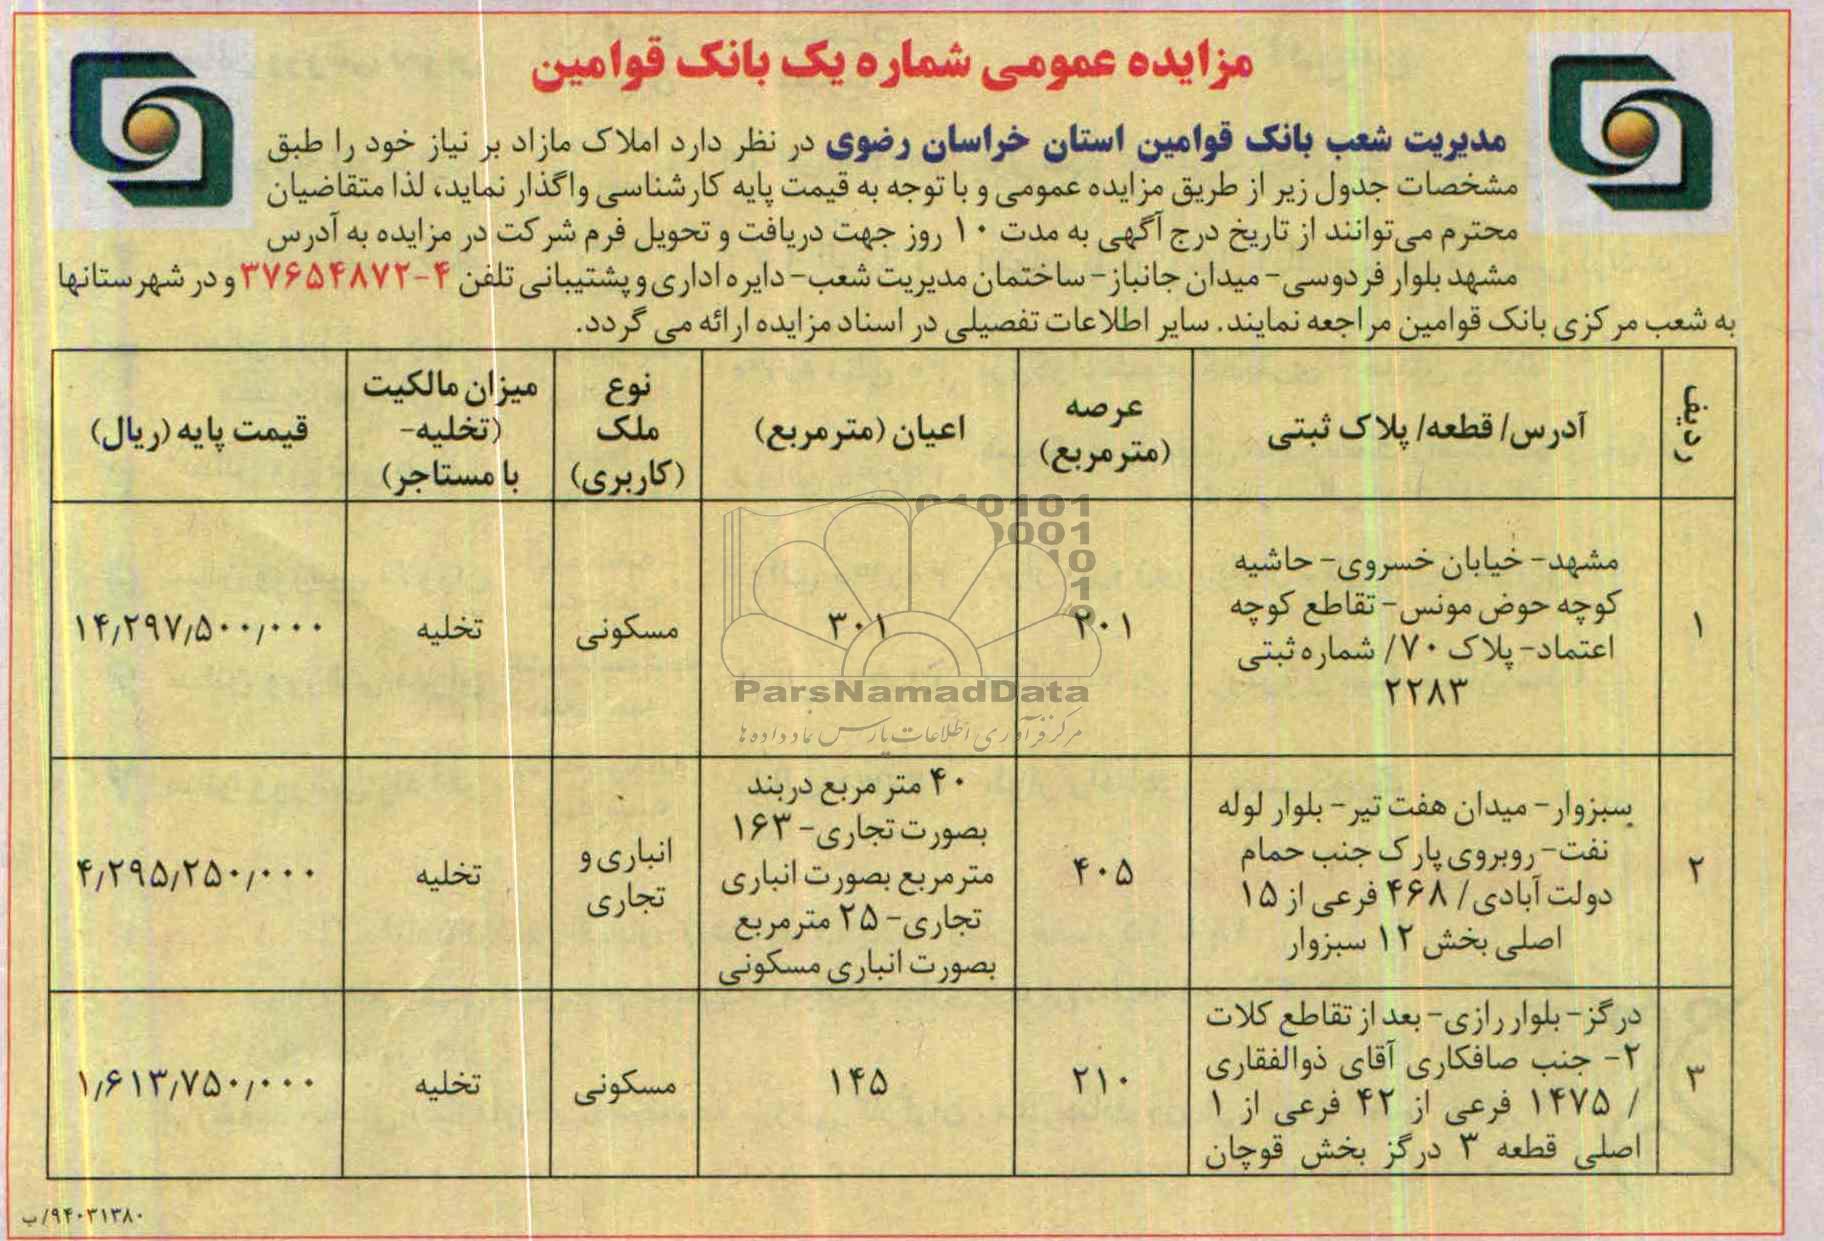 مزایده عمومی شماره یک بانک قوامین
مدیریت شعب بانک قوامین استان خراسان رضوی در نظر دارد املاک مازاد بر نیاز خود را طبق
مشخصات جدول زیر از طریق مزایده عمومی و با توجه به قیمت پایه کارشناسی واگذار نماید، لذا متقاضیان
محترم می‌توانند از تاریخ درج آگهی به مدت ۱۰ روز جهت دریافت و تحویل فرم شرکت در مزایده به آدرس
مشهد بلوار فردوسی- میدان جانباز- ساختمان مدیریت شعب- دایره اداری و پشتیبانی تلفن ۴-۳۷۶۵۴۸۷۲ و در شهرستانها
به شعب مرکزی بانک قوامین مراجعه نمایند. سایر اطلاعات تفصیلی در اسناد مزایده ارائه می گردد.
ردیف
آدرس/ قطعه/ پلاک ثبتی
عرصه
(مترمربع)
اعیان (مترمربع)
نوع
ملک
(کاربری)
میزان مالکیت
(تخلیه-
با مستاجر)
قیمت پایه (ریال)
۱
مشهد- خیابان خسروی- حاشیه
کوچه حوض مونس- تقاطع کوچه
اعتماد- پلاک ۷۰/ شماره ثبتی
۲۲۸۳
۲۰۱
۳۰۱
مسکونی
تخلیه
۱۴٫۲۹۷٫۵۰۰٫۰۰۰
۲
سبزوار- میدان هفت تیر- بلوار لوله
نفت- روبروی پارک جنب حمام
دولت آبادی/ ۴۶۸ فرعی از ۱۵
اصلی بخش ۱۲ سبزوار
۴۰۵
۴۰ متر مربع دربند
بصورت تجاری- ۱۶۳
مترمربع بصورت انباری
تجاری- ۲۵ مترمربع
بصورت انباری مسکونی
انباری و
تجاری
تخلیه
۴٫۲۹۵٫۲۵۰٫۰۰۰
۳
درگز- بلوار رازی- بعد از تقاطع کلات
۲- جنب صافکاری آقای ذوالفقاری
/ ۱۴۷۵ فرعی از ۴۲ فرعی از ۱
اصلی قطعه ۳ درگز بخش قوچان
۲۱۰
۱۴۵
مسکونی
تخلیه
۱٫۶۱۳٫۷۵۰٫۰۰۰
۹۴۰۳۱۳۸۰/ب
ParsNamadData
مرکز فرآوری اطلاعات پارس نماد داده ها